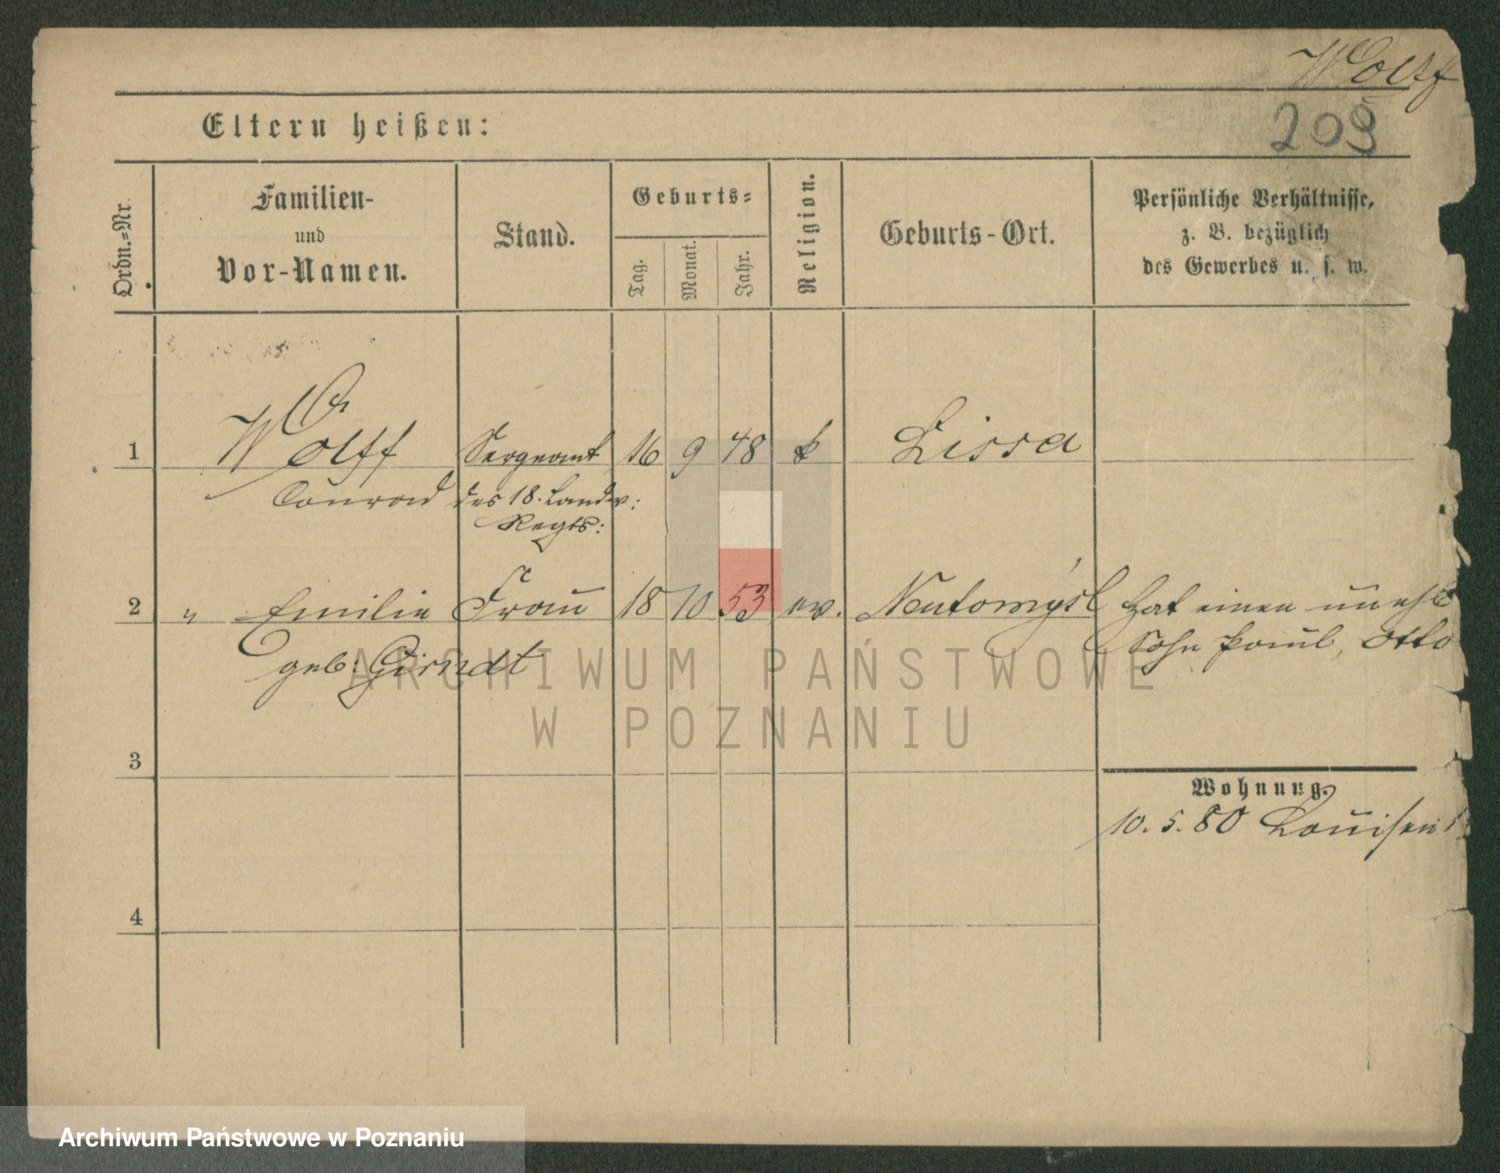 Wolff
209
Eltern heißen:
Ordn.-Nr.
Familien-
und
Vor-Namen.
Stand.
Geburts-
Tag.
Monat.
Jahr.
Religion.
Geburts-Ort.
Persönliche Verhältnisse,
z. B. bezüglich
des Gewerbes u. s. w.
1 Wolff Sergeant 16 9 48 k Lissa
Conrad des 18. Landw:
Regts:
2 " Emilie Frau 18 10 53 ev. Neutomysl hat einen unehl
geb: Girndt Sohn Paul, Otto
3
Wohnung.
10. 5. 80 Louisen
4
ARCHIWUM PAŃSTWOWE
W POZNANIU
Archiwum Państwowe w Poznaniu